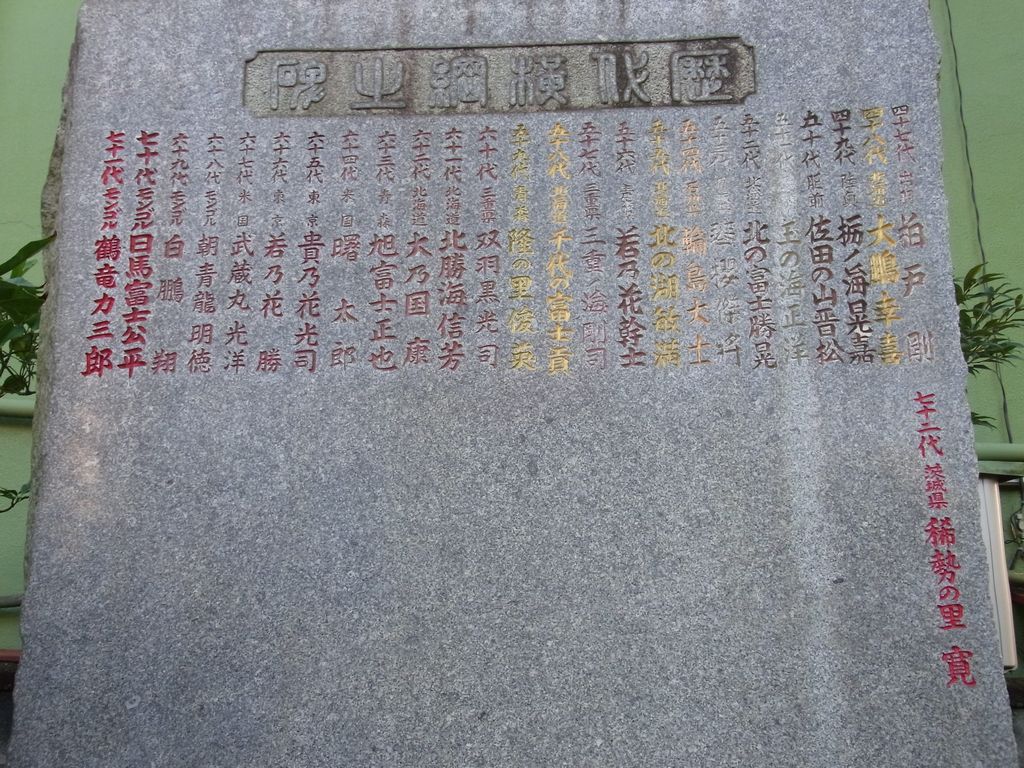 歴代横綱之碑
四十七代 柏戸剛
四十八代 大鵬幸喜
四十九代 栃ノ海晃嘉
五十代 肥前 佐田の山晋松
五十一代 玉の海正洋
五十二代 北海道 北の富士勝晃
五十三代 琴櫻傑將
五十四代 石川 輪島大士
五十五代 北海道 北の湖敏満
五十六代 青森 若乃花幹士
五十七代 三重県 三重ノ海剛司
五十八代 北海道 千代の富士貢
五十九代 青森 隆の里俊英
六十代 三重県 双羽黒光司
六十一代 北海道 北勝海信芳
六十二代 北海道 大乃国康
六十三代 青森 旭富士正也
六十四代 米国 曙太郎
六十五代 東京 貴乃花光司
六十六代 東京 若乃花勝
六十七代 米国 武蔵丸光洋
六十八代 モンゴル 朝青龍明徳
六十九代 モンゴル 白鵬翔
七十代 モンゴル 日馬富士公平
七十一代 モンゴル 鶴竜力三郎
七十二代 茨城県 稀勢の里寛